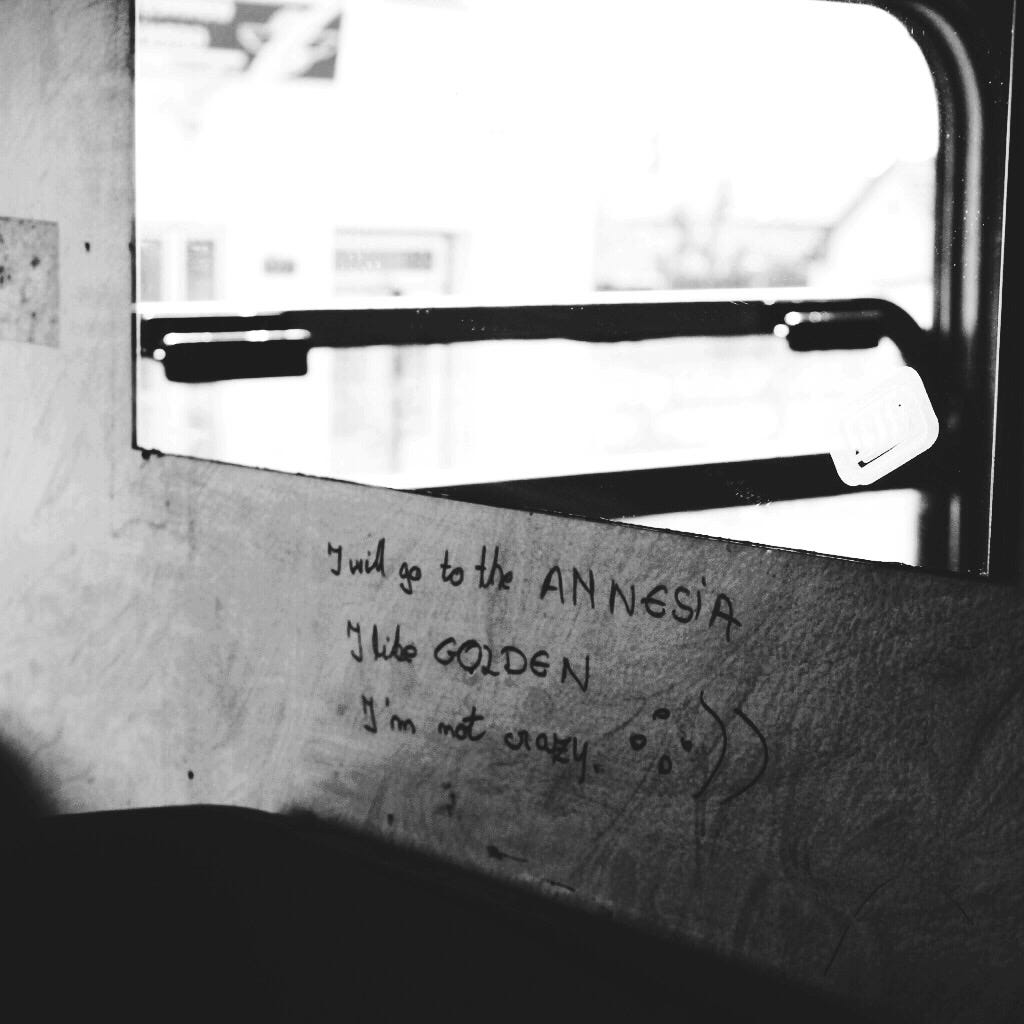 I will go to the ANNESiA
I like GOLDEN
I'm not crazy. :: ))